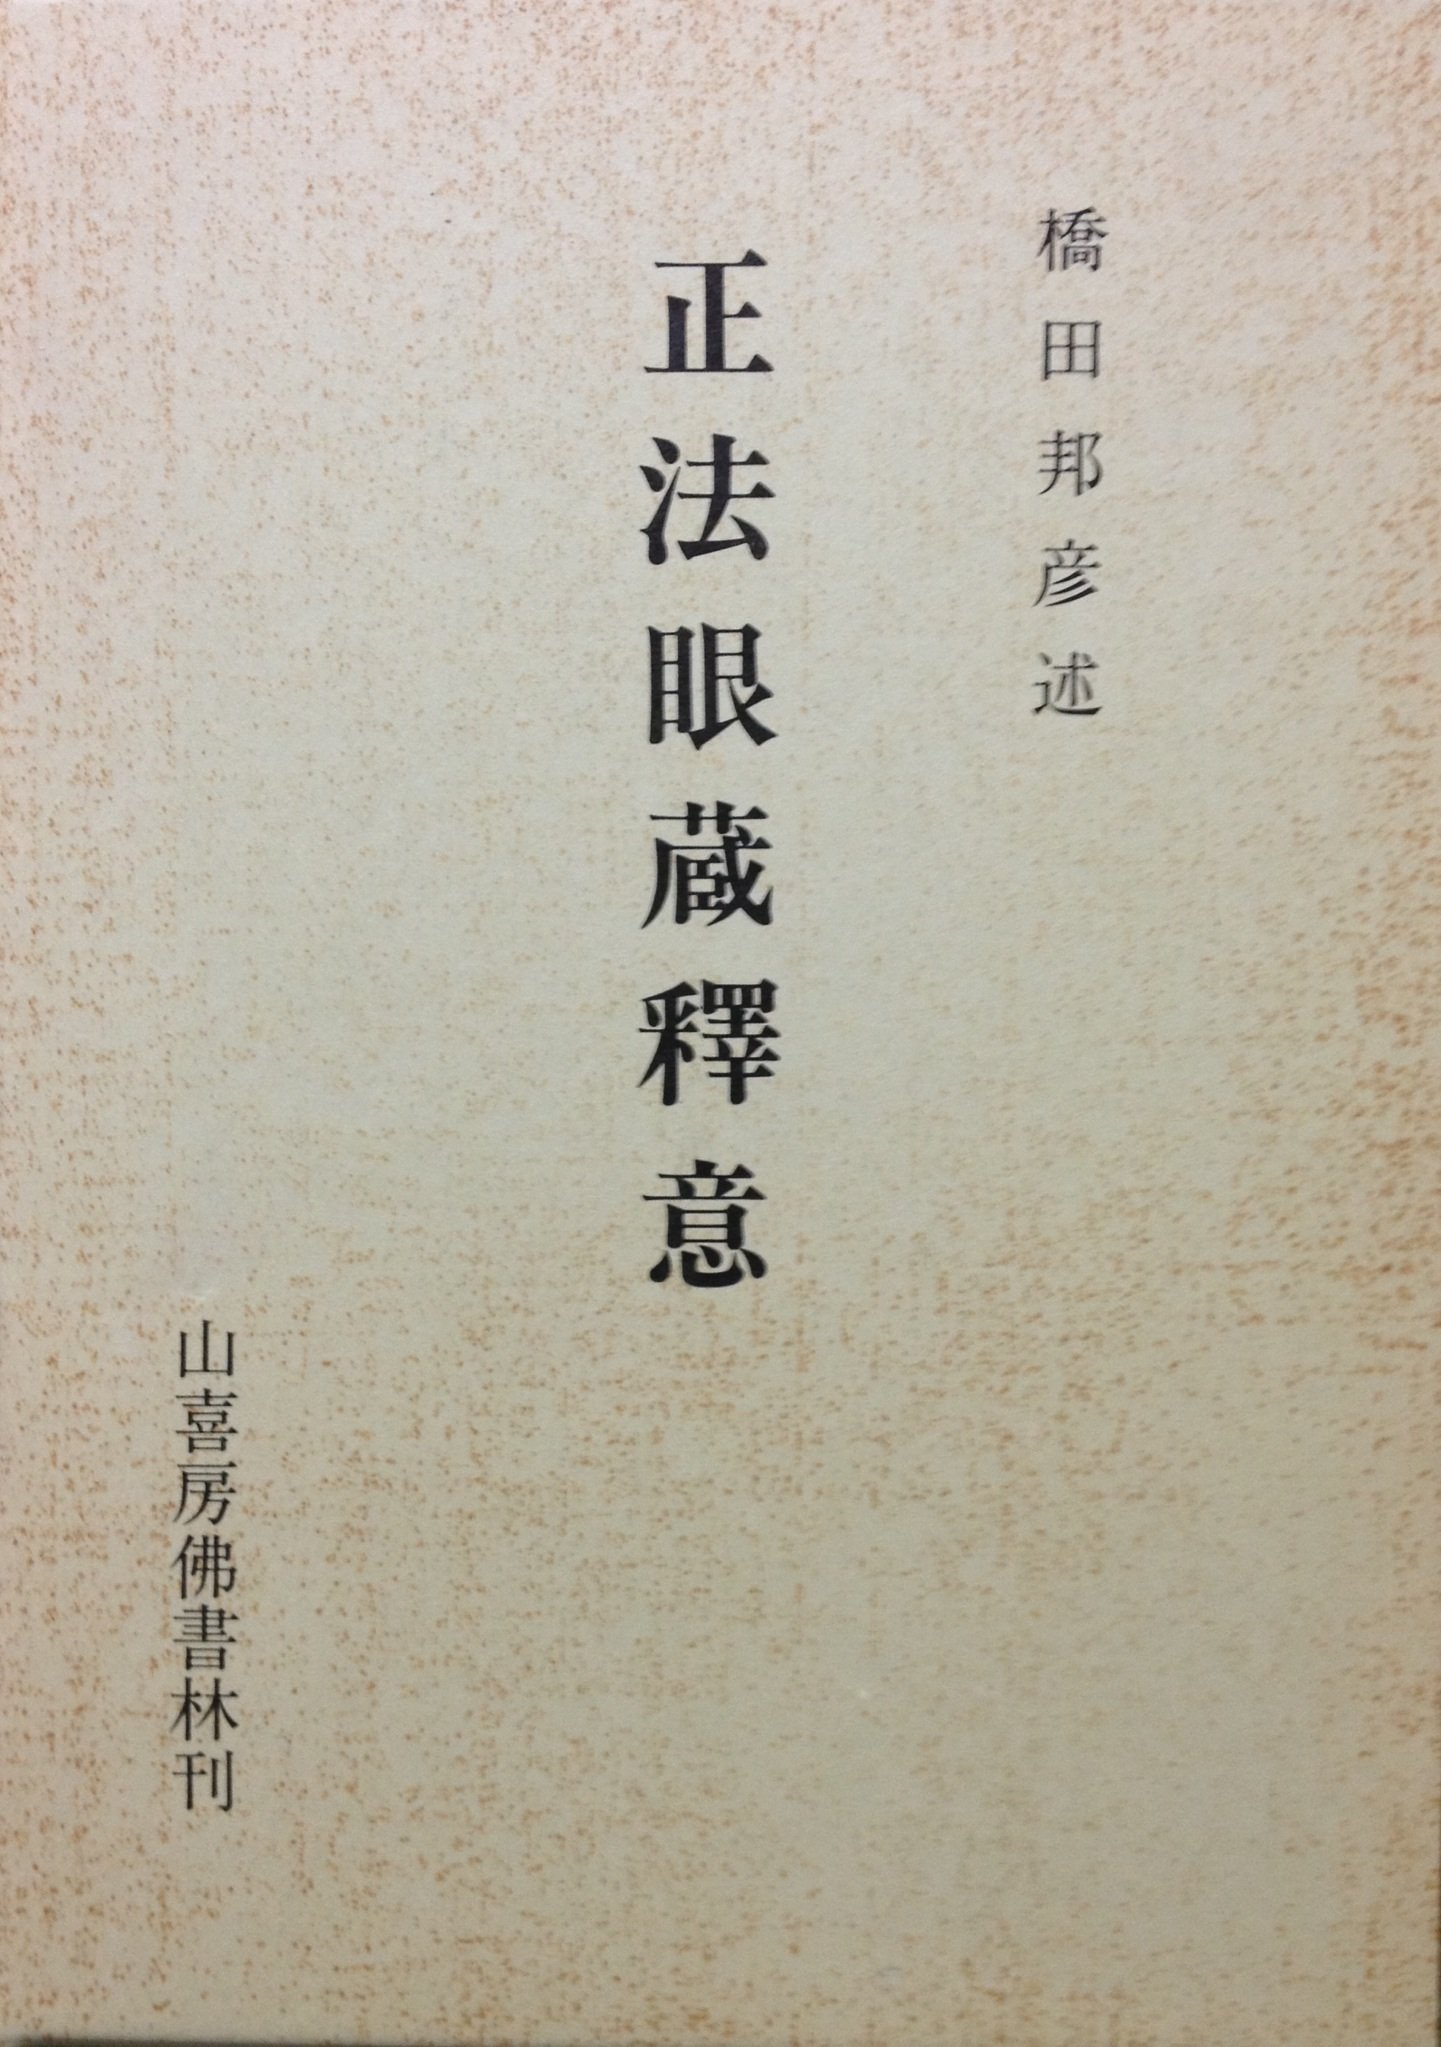 橋田邦彦述
正法眼蔵釋意
山喜房佛書林刊